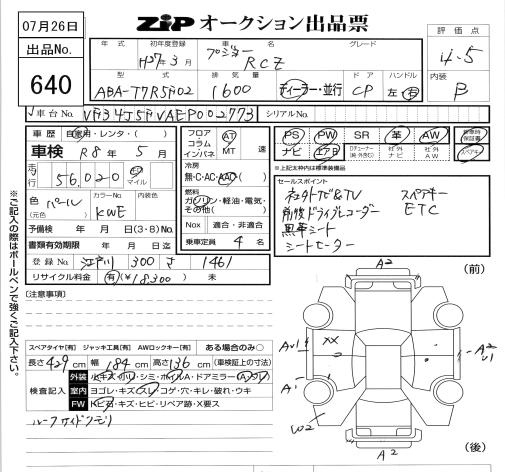 07月26日
出品No.
640
ZIP オークション出品票
評価点
4.5
内装
B
年式 初年度登録 車名 グレード
H27年3月 プジョー RCZ
型式 排気量 ドア ハンドル
ABA-T7R5F02 1600 ディーラー・並行 CP 左 右
車台No. VF34J5FVAEP002773 シリアルNo.
車歴 自家用・レンタ・( )
車検 R8年5月
走行 56,020 km マイル
色 パール (元色 ) カラーNo. KWE 内装色
予備検 年 月 日(3・8)No.
書類有効期限 年 月 日迄
登録No. 江戸川 300 さ 1461
リサイクル料金 有 (¥18,300 ) 未
フロア コラム インパネ AT MT 速
冷房
無・C・AC・AAC
燃料
ガソリン・軽油・電気・その他( )
Nox 適合・非適合
乗車定員 4 名
PS PW SR 革 AW 新車時保証書
ナビ エアB TVチューナー 社外ナビ 社外AW スペアキー
※上記太枠内は標準装備品
セールスポイント
ナビTV スペアキー
前後ドライブレコーダー ETC
黒革シート
シートヒーター
※ご記入の際はボールペンで強くご記入下さい。
[注意事項]
スペアタイヤ[有] ジャッキ工具[有] AWロックキー[有] ある場合のみ〇
長さ 429 cm 幅 184 cm 高さ 136 cm (車検証上の寸法)
検査記入
外装
室内 ヨゴレ・キズ・スレ・コゲ・穴・キレ・破れ・ウキ
FW トビ石・キズ・ヒビ・リペア跡・X要ス
(前)
A2
XX
A1
W2
A2
U1
A2
(後)